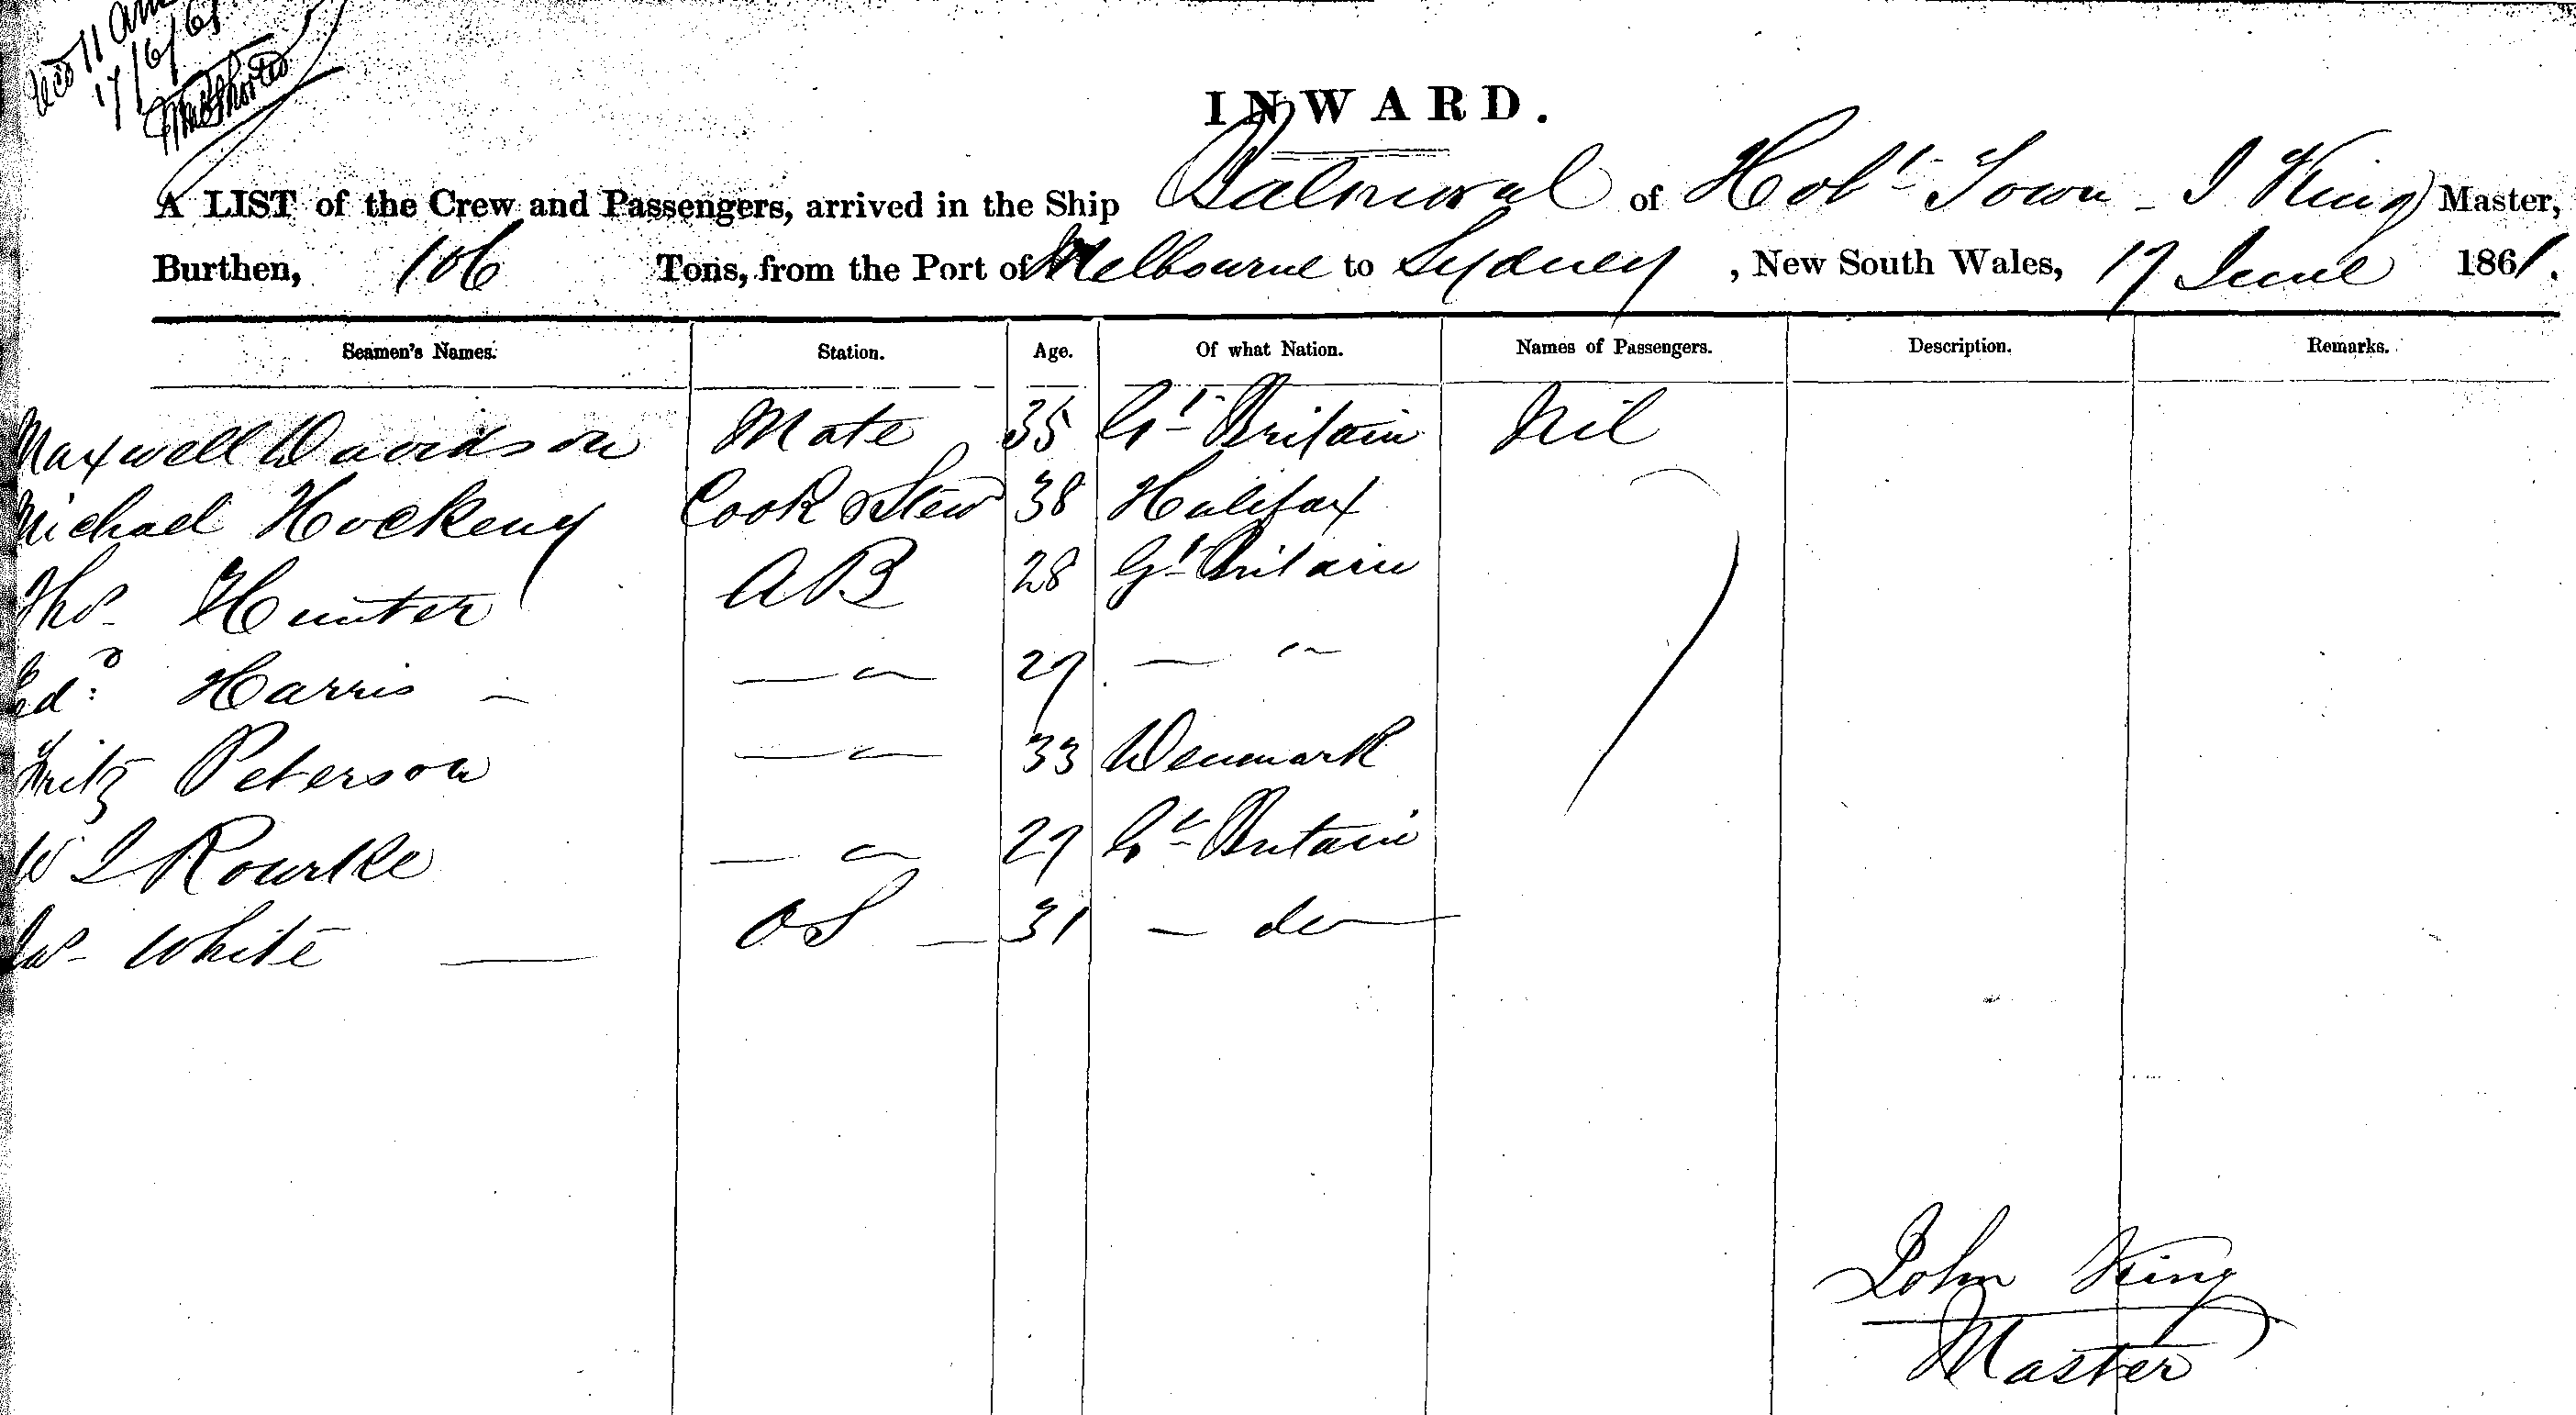 11 am
17/6/61
INWARD.
A LIST of the Crew and Passengers, arrived in the Ship Balmoral of Hobt Town - J King Master,
Burthen, 106 Tons, from the Port of Melbourne to Sydney, New South Wales, 17 June 1861.
Seamen's Names. Station. Age. Of what Nation. Names of Passengers. Description. Remarks.
Maxwell Davidson Mate 35 Gt Britain Nil
Michael Hockeny Cook & Stew 38 Halifax
Thos Hunter AB 28 Gt Britain
Edd Harris - — " — 27 — " —
Fritz Peterson — " — 33 Denmark
W J Rourke — " — 27 Gt Britain
Jas White — OS — 31 — do —
John King
Master